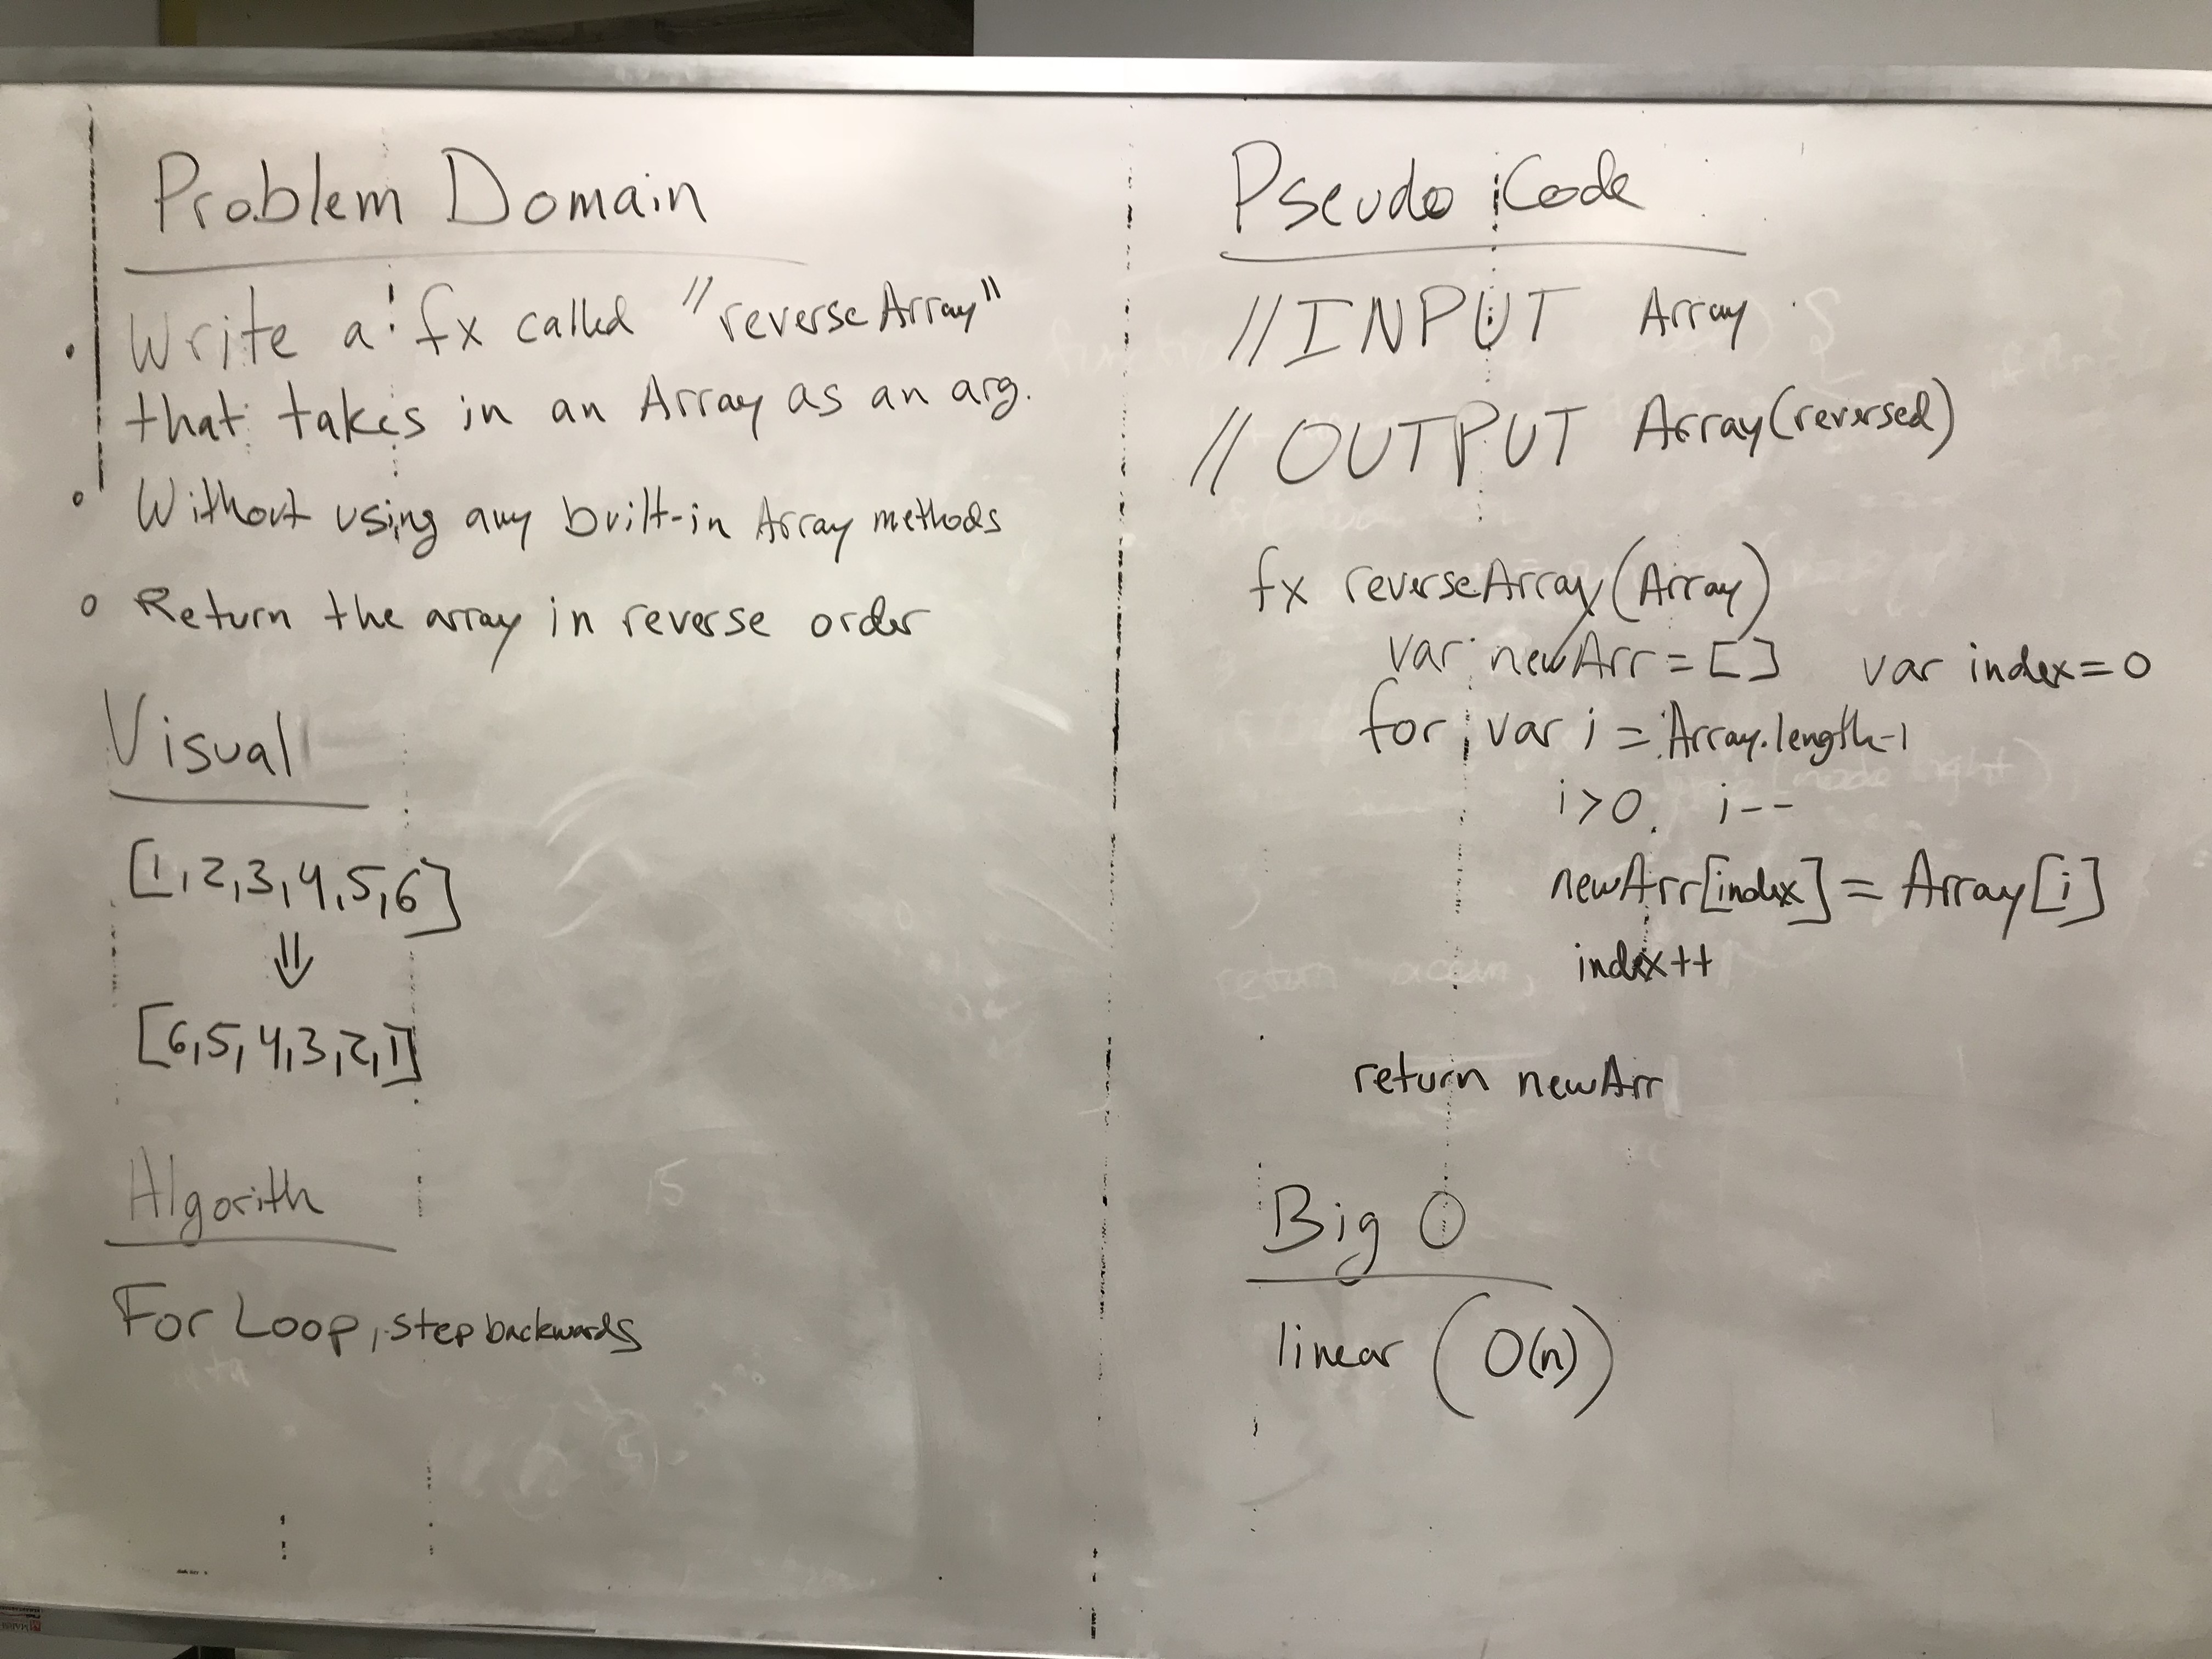 Problem Domain
Write a fx called "reverseArray"
that takes in an Array as an arg.
Without using any built-in Array methods
Return the array in reverse order
Visual
[1,2,3,4,5,6]
⇓
[6,5,4,3,2,1]
Algorith
For Loop, step backwards
Pseudo Code
//INPUT Array
// OUTPUT Array(reversed)
fx reverseArray(Array)
var newArr = [] var index = 0
for var i = Array.length-1
i>0 i--
newArr[index] = Array[i]
index++
return newArr
Big O
linear (O(n))